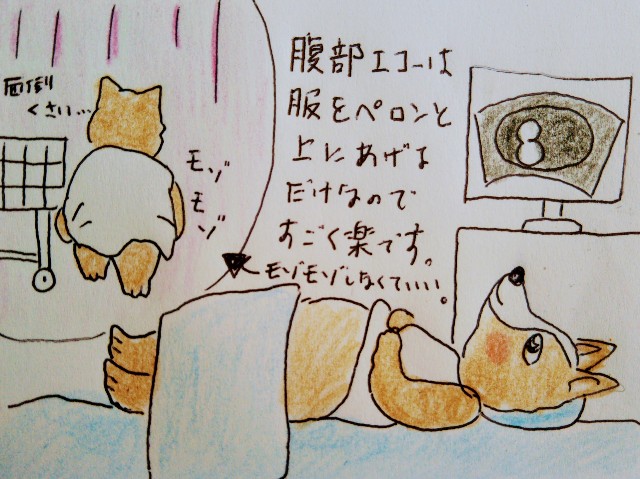 腹部エコーは
服をペロンと
上にあげる
だけなので
すごく楽です。
モゾモゾしなくていい。
面倒
くさい…
モゾ
モゾ